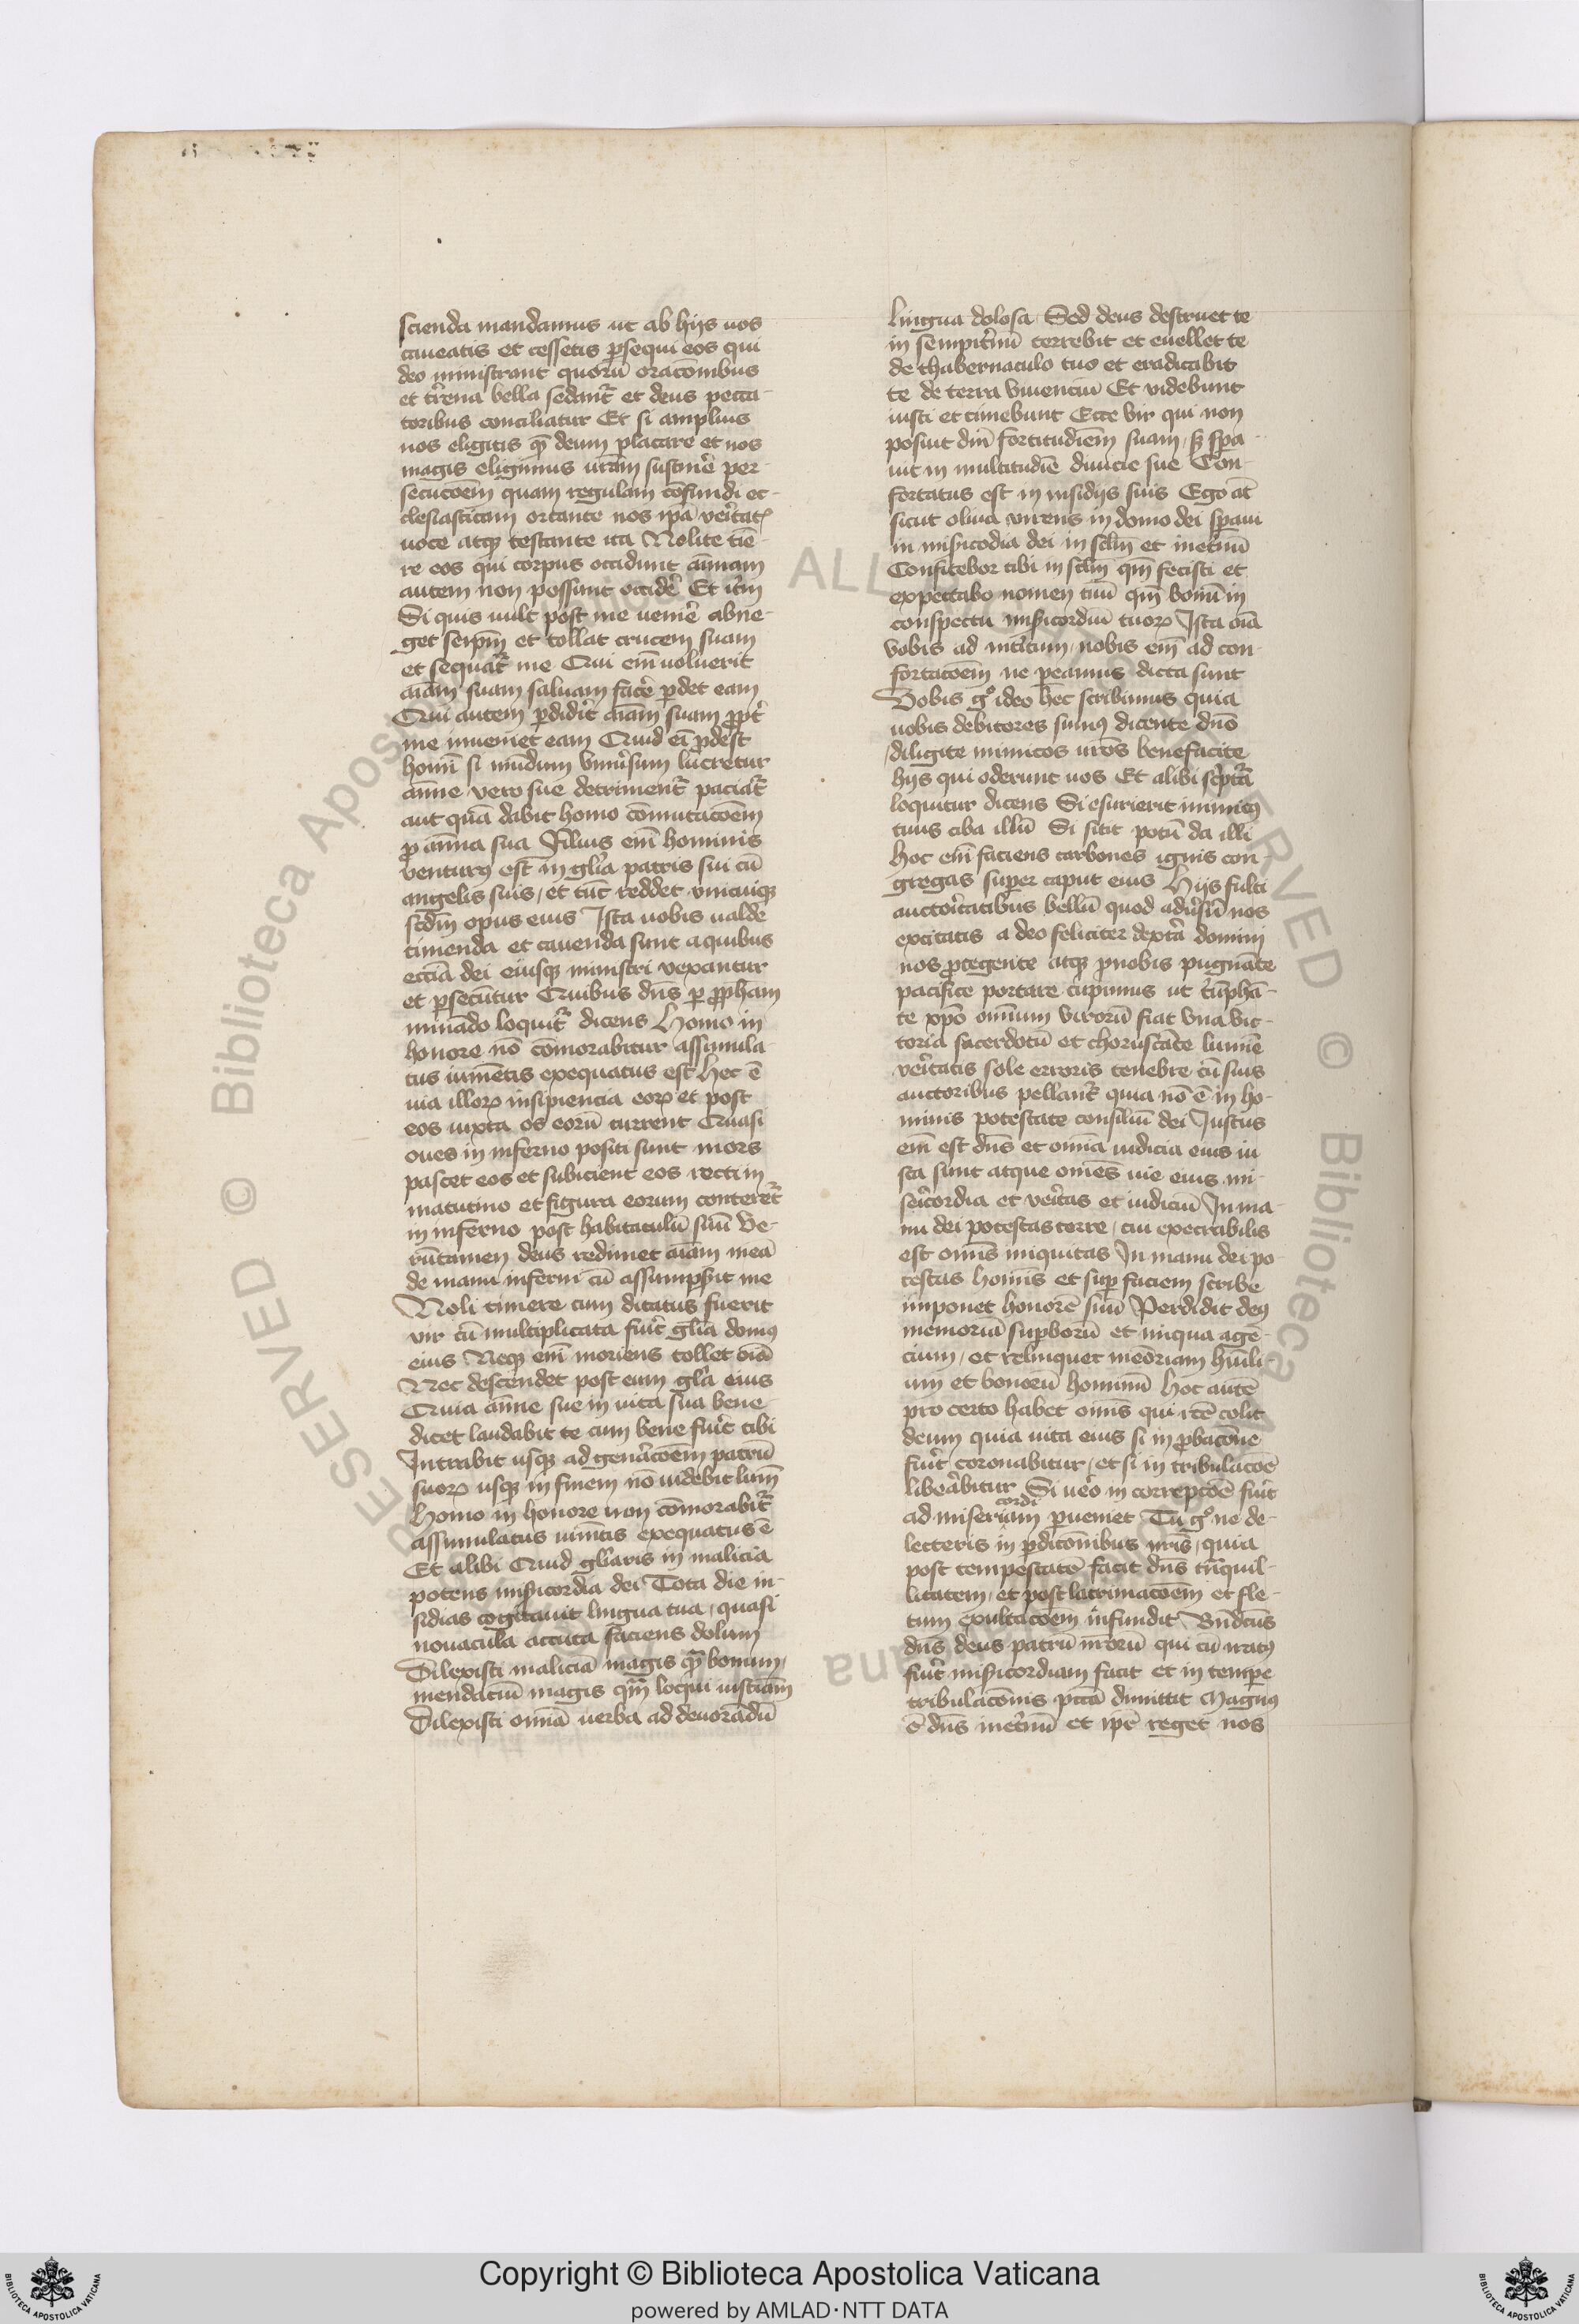 scienda mandamus ut ab hijs uos
caueatis et cessetis ꝑsequi eos qui
deo ministrant quorū oracōnibus
et tr̄rena bella sedant᷑ et deus pecca-
toribus conciliatur Et si amplius
nos eligitis qͣ̄ deum placare et nos
magis eligimus ur̄am sustinē per-
secucōem quam regulam cōfundi ec-
clesiasticam ortante nos ip̄a veritatꝭ
uoce atqꝫ testante ita Nolite tīe-
re eos qui corpus occidunt animam
autem non possunt occidē Et itm̄
Si quis uult post me uenīe abne-
get seip̄m et tollat crucem suam
et sequat᷑ me Qui em̄ uoluerit
aīam suam saluam facē ꝑdet eam
Qui autem ꝑdidit̄ aīam suam ꝓpt̄
me inueniet eam Quid ei ꝓdest
homī si mūdum vniūsum lucretur
anīme vero sue detriment᷑ paciat᷑
aut quā dabit homo cōmutacōem
ꝓ anīma sua Filius em̄ hominis
venturꝰ est in glīa patris sui cū
angelis suis, et tūc reddet vnicuiqꝫ
scdm̄ opus eius Ista uobis ualde
timenda et cauenda sunt a quibus
eccīa dei eiusqꝫ ministri vexantur
et ꝑsecūtur Quibus dn̄s ꝑ ꝓpham
minādo loquit᷑ dicens Homo in
honore nō cōmorabitur assimula-
tus iumentis exequatus est Hec ē
uia illoꝝ insipiencia eoꝝ et post
eos iuxta os eorū current Quasi
oues in inferno positi sunt mors
pascet eos et subicient eos recti in
matutino et figura eorum conteret᷑
in inferno post habitaculū suū Ve-
rūtamen deus redimet aīam meā
de manu inferni cū assumpsit me
Noli timere cum ditatus fuerit
vir cū multiplicata fuīt glīa domꝰ
eius Neqꝫ em̄ moriens tollet oīa
Nec descendet post eum glīa eius
Quia anīme sue in uita sua bene-
dicet laudabit te cum bene fuīt tibi
Intrabit usqꝫ ad genāconem patrū
suoꝝ usqꝫ in finem nō uidebit lum̄
Homo in honore non cōmorabit᷑
assimulatus iumētis exequatus ē
Et alibi Quid glīaris in malicia
potens misīcordia dei Tota die in-
sidias cogitauit lingua tua, quasi
nouacula accuta faciens dolum
Dilexisti maliciā magis qͣ̄ bonum,
mendaciū magis qͣm̄ loqui iusticiam
Dilexisti omīa uerba ad deuorādū
lingua dolosa, Sed deus destruet te
in sempitīnū terrebit et euellet te
de thabernaculo tuo et eradicabit
te de terra viuenciū Et uidebunt
iusti et timebunt Ecce vir qui non
posuit dm̄ fortitudīem suam, sꝫ spa-
uit in multitudīe diuicie sue Con-
fortatus est in insidijs suis Ego at̄
sicut oliua uirens in domo dei spaui
in misīcodia dei in sclm̄ et inet̄nū
Confitebor tibi in sclm̄ qm̄ fecisti et
expectabo nomen tuū qm̄ bonū in
conspectu misīcordiū tuoꝝ Ista oīa
vobis ad int̄itum, nobis em̄ ad con-
fortacōem ne peamus dicta sunt
Vobis gͦ ideo hec scribimus quia
uobis debitores sumꝰ dicente dn̄o
diligite inimicos ur̄os benefacite
hijs qui oderunt uos Et alibi sc͛ptᷓa
loquitur dicens Si esurierit inimicꝰ
tuus ciba illū Si sitit potū da illi
Hoc em̄ faciens carbones ignis con-
gregas super caput eius Hijs fulti
auctoritatibus bellū quod adūsū nos
excitatis a deo feliciter dextᷓa domini
nos ꝓtegente atqꝫ ꝓ nobis pugnāte
pacifice portare cupimus ut tūphā-
te xp̄o omnium virorū fiat vna vic-
toria sacerdotū et choruscāte lumīe
veritatis sole erroris tenebre cū suis
auctoribus pellant᷑ quia nō ē in ho-
minis potestate consiliū dei Iustus
em̄ est dn̄s et omnia iudicia eius iu
sta sunt atque omēs uie eius mi-
seīcordia et veritas et iudiciū In ma-
nu dei potestas terre, cui execrabilis
est omīs iniquitas In manu dei po-
testas homīs et suꝑ faciem scribe
imponet honorē suū Perdidit deꝰ
memoriā suꝑborū et iniqua agē-
cium, et relinquet meōriam hūili-
um et bonorū hominū Hoc autē
pro certo habet omīs qui te colit
deum quia uita eius si in ꝓbacōne
fuīt coronabitur, et si in tribulacoē
libeābitur Si uēo in correpcoē fuīt
cordi
ad miseriam ꝑueniet Tu gͦ ne de-
lecteris in ꝑdicōnibus nr̄is, quia
post tempestatē facit dn̄s tᷓnquil-
litatem, et post lacrimacōem et fle-
tum exultacōem infundit Bn̄dcūs
dn̄s deus patrū nr̄orū qui cū iratꝰ
fuīt misīcordiam facit et in tempe
tribulacōnis pccā dimittit Magnꝰ
ē dn̄s inet̄nū et ip̄e reget nos
Copyright © Biblioteca Apostolica Vaticana
powered by AMLAD·NTT DATA